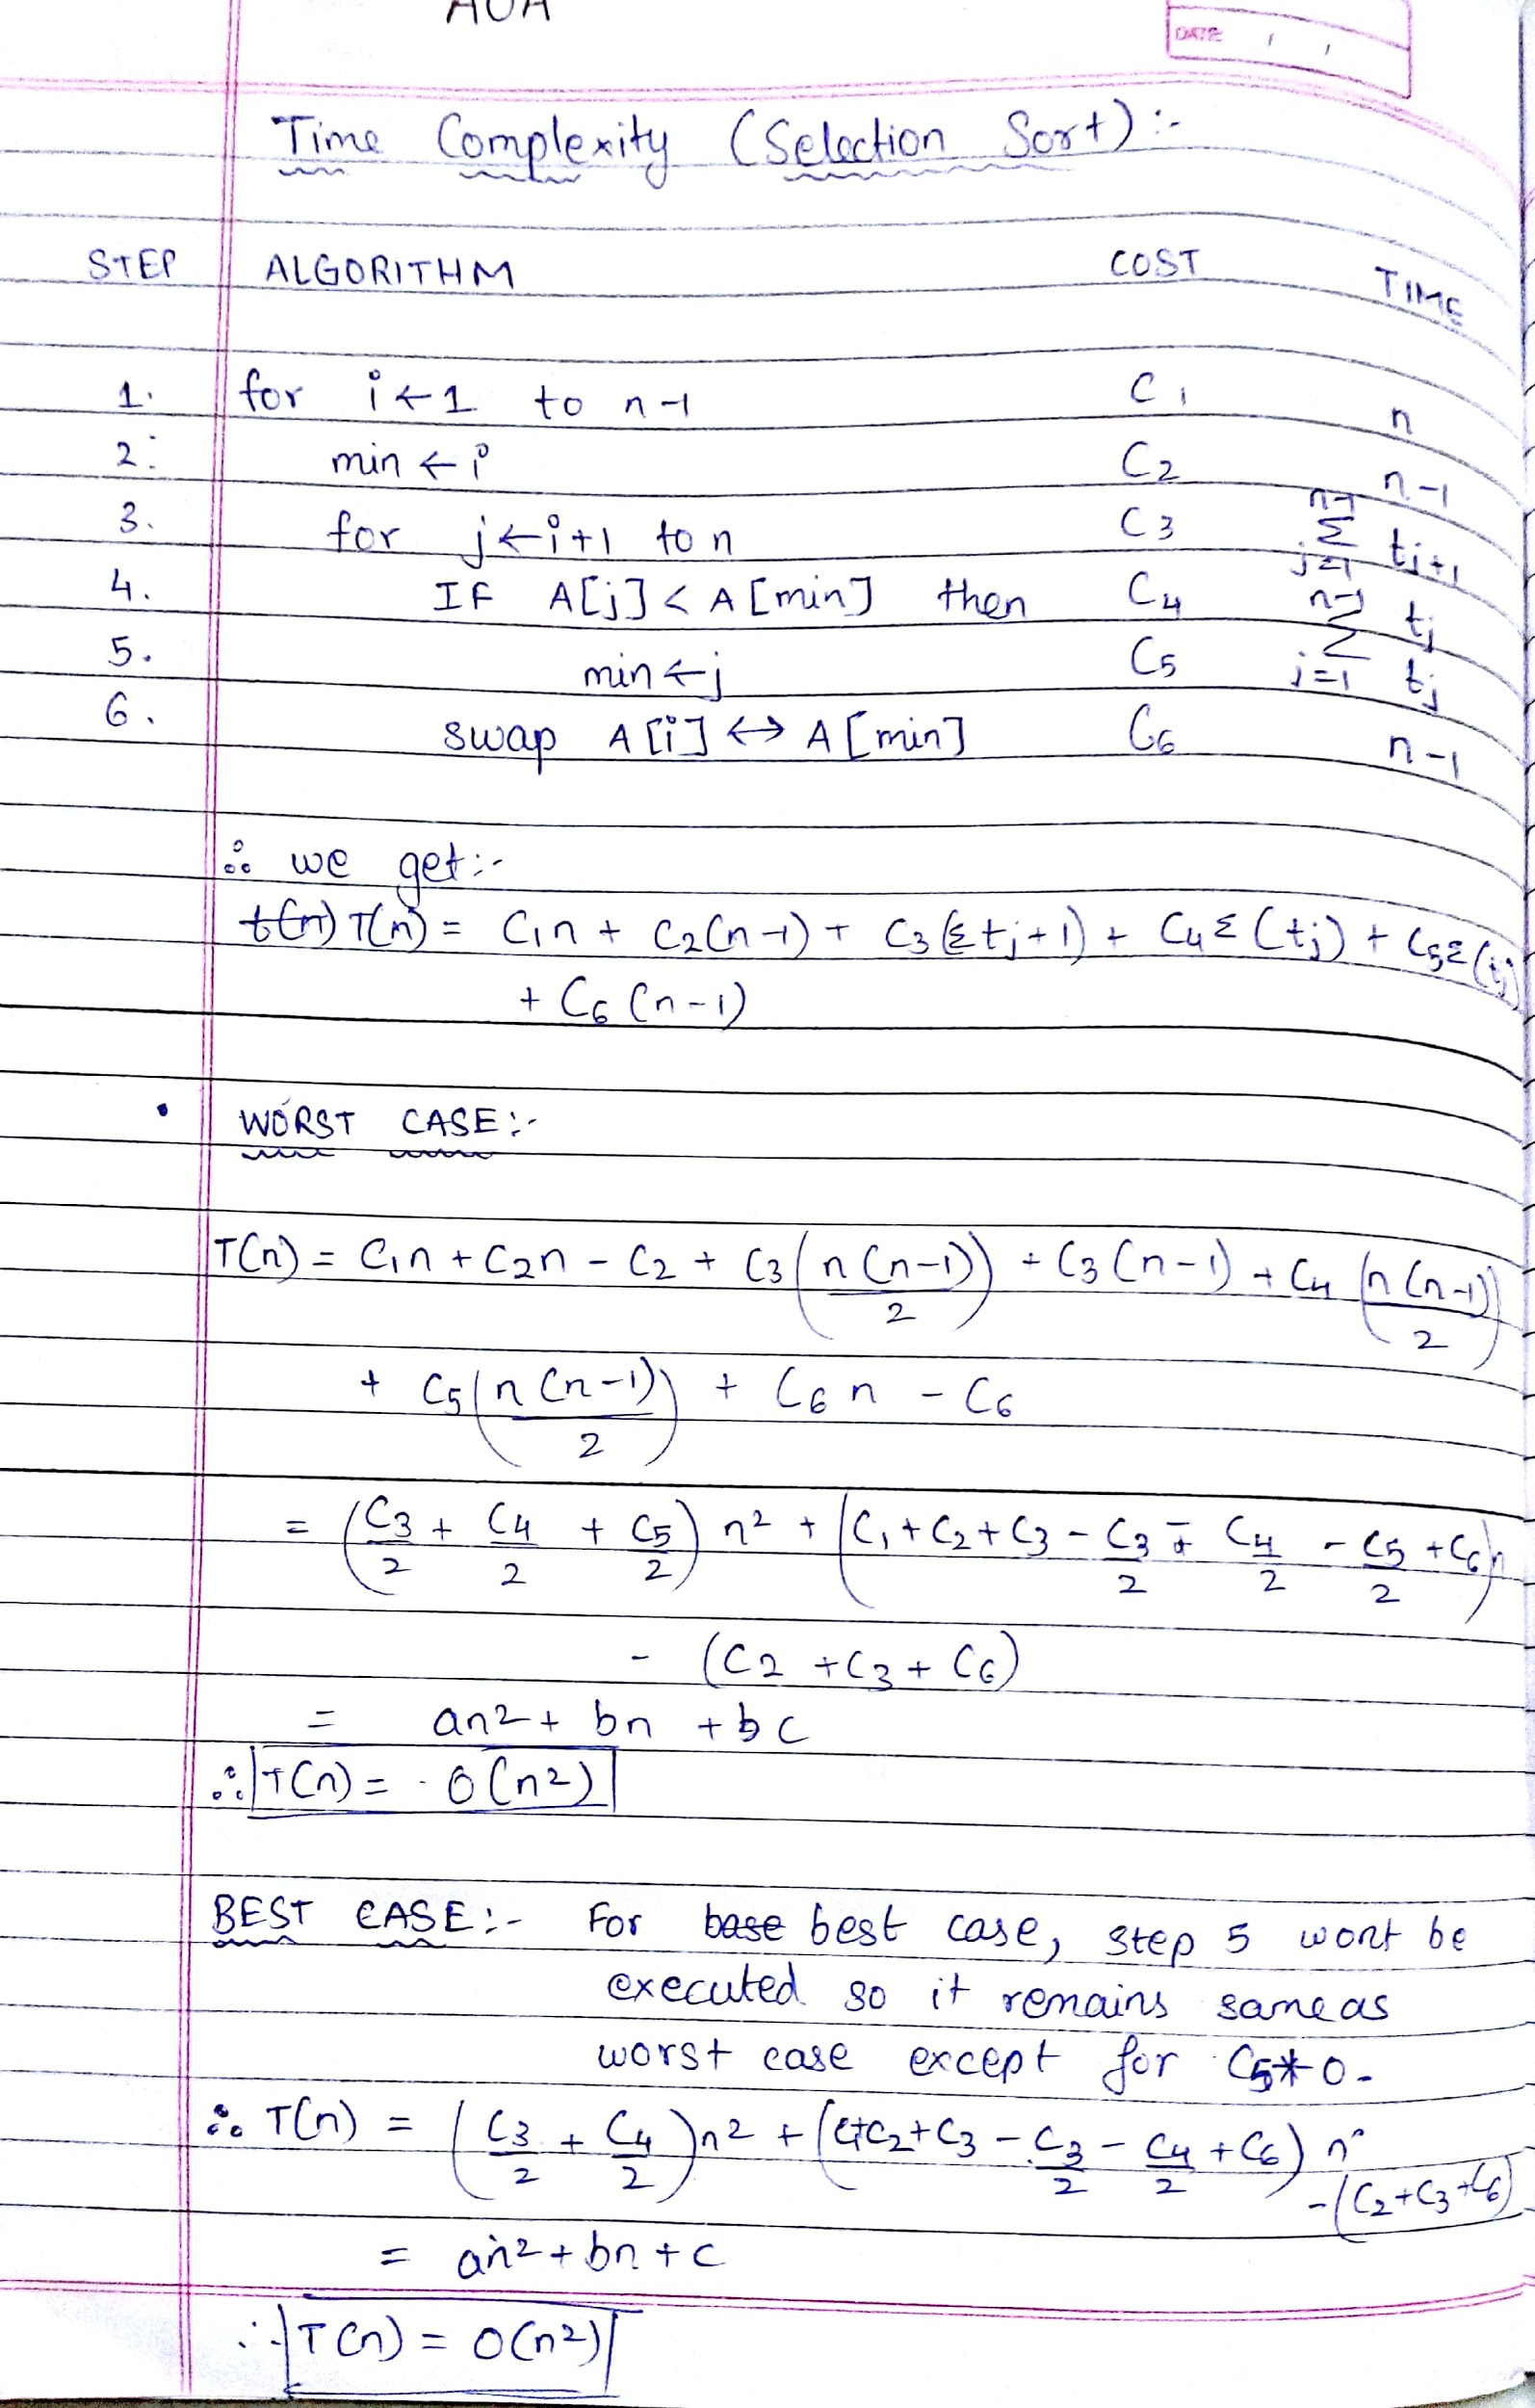 AOA
DATE / /
Time Complexity (Selection Sort) :-
STEP ALGORITHM COST TIME
1. for i ← 1 to n-1 C1 n
2. min ← i C2 n-1
3. for j ← i+1 to n C3 n-1 Σ j=1 tj+1
4. IF A[j] < A[min] then C4 n-1 Σ j=1 tj
5. min ← j C5 tj
6. swap A[i] ↔ A[min] C6 n-1
∴ we get:-
t(n) T(n) = C1n + C2(n-1) + C3(Σtj+1) + C4Σ(tj) + C5Σ(tj)
+ C6(n-1)
• WORST CASE :-
T(n) = C1n + C2n - C2 + C3(n(n-1)/2) + C3(n-1) + C4(n(n-1)/2)
+ C5(n(n-1)/2) + C6n - C6
= (C3/2 + C4/2 + C5/2) n2 + (C1 + C2 + C3 - C3/2 - C4/2 - C5/2 + C6)n
- (C2 + C3 + C6)
= an2 + bn + b c
∴ T(n) = O(n2)
BEST CASE :- For base best case, step 5 wont be
executed so it remains same as
worst case except for C5*0.
∴ T(n) = (C3/2 + C4/2)n2 + (C1+C2+C3 - C3/2 - C4/2 + C6) n
-(C2+C3+C6)
= an2 + bn + c
∴ T(n) = O(n2)